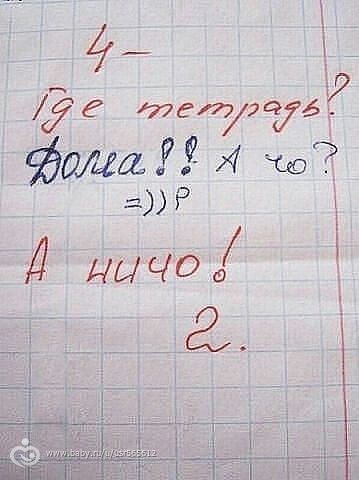 4-
Где тетрадь?
Дома!! А чо?
=))Р
А ничо!
2.
www.baby.ru/u/usr565612